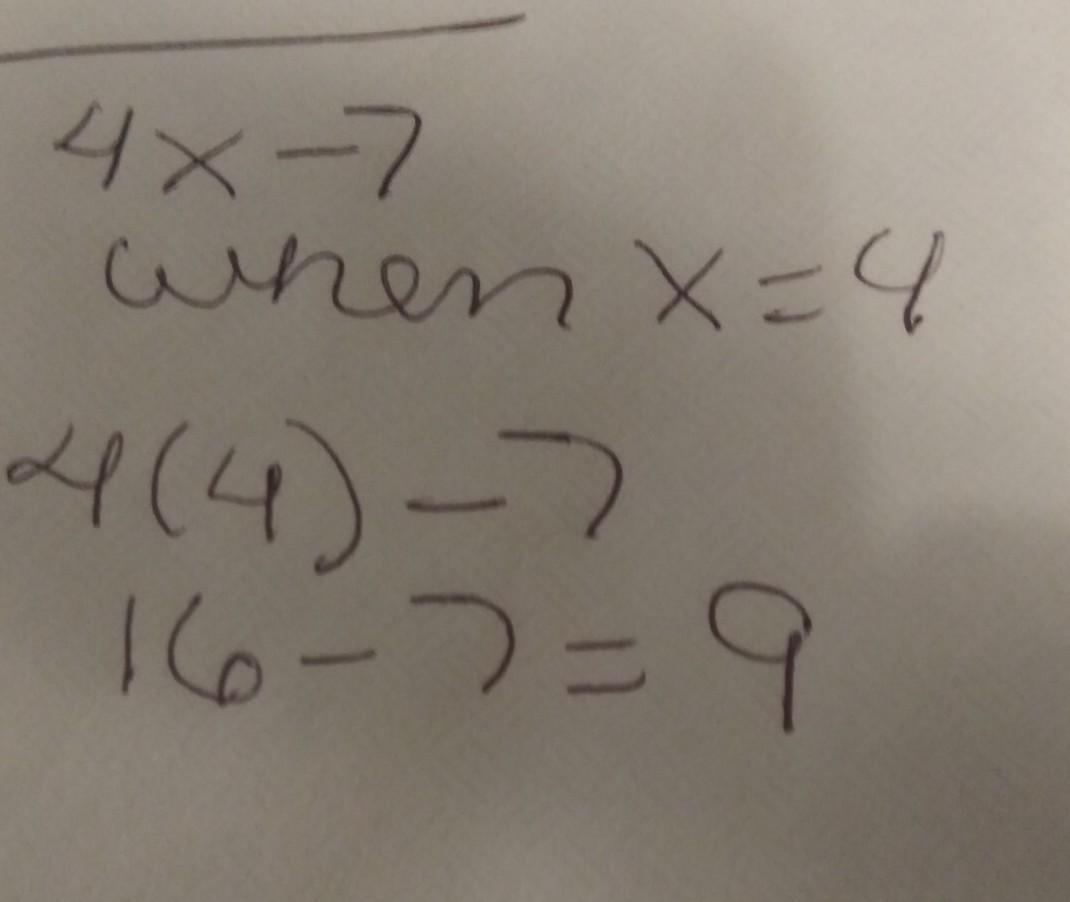 4x-7
when x=4
4(4)-7
16-7=9